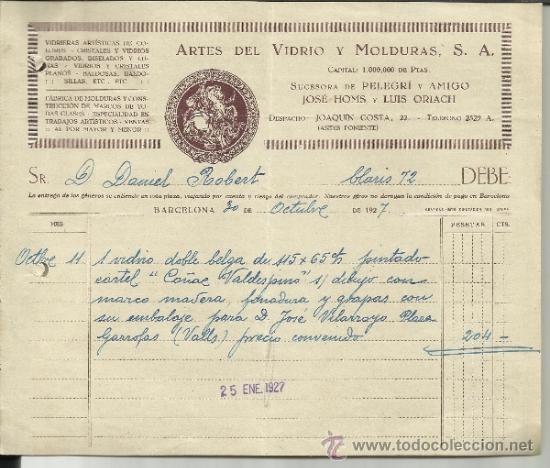 VIDRIERAS ARTÍSTICAS DE CO-
LORES - CRISTALES Y VIDRIOS
GRABADOS, BISELADOS Y CUR-
VADOS - VIDRIOS Y CRISTALES
PLANOS - BALDOSAS, BALDO-
SILLAS, ETC., ETC.
FÁBRICA DE MOLDURAS Y CONS-
TRUCCIÓN DE MARCOS DE TO-
DAS CLASES - ESPECIALIDAD EN
TRABAJOS ARTÍSTICOS - VENTAS
AL POR MAYOR Y MENOR
ARTES DEL VIDRIO Y MOLDURAS, S. A.
CAPITAL: 1.000,000 DE PTAS.
SUCESORA DE PELEGRÍ Y AMIGO
JOSÉ HOMS Y LUIS ORIACH
DESPACHO: JOAQUÍN COSTA, 22. - TELÉFONO 2529 A.
(ANTES PONIENTE)
SR. D. Daniel Robert Claris 72 DEBE
La entrega de los géneros se entiende en esta plaza, viajando por cuenta y riesgo del comprador. Nuestros giros no derogan la condición de pago en Barcelona
BARCELONA 30 DE Octubre DE 1927
MES PESETAS CTS.
Octbre 11 1 vidrio doble belga de 115 x 65 c/m pintado
cartel "Coñac Valdespino" s/ dibujo con
marco madera, y grapas con
su embalaje para D. José Vilarroya. Plaza
Garrofas (Valls.) precio convenido. 204 -
25 ENE. 1927
todocoleccion.net